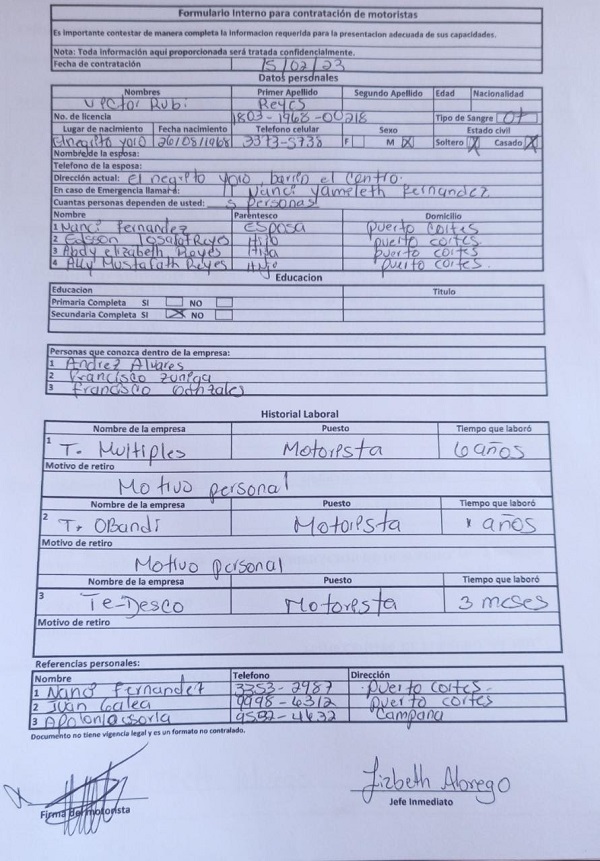 Formulario Interno para contratación de motoristas
Es importante contestar de manera completa la informacion requerida para la presentacion adecuada de sus capacidades.
Nota: Toda información aquí proporcionada será tratada confidencialmente.
Fecha de contratación 15/02/23
Datos personales
Nombres Primer Apellido Segundo Apellido Edad Nacionalidad
Victor Rubi Reyes
No. de licencia 1803-1968-00218 Tipo de Sangre O+
Lugar de nacimiento Fecha nacimiento Telefono celular Sexo Estado civil
El negrito yoro 26/08/1968 3373-5738 F M X Soltero X Casado X
Nombre de la esposa:
Telefono de la esposa:
Dirección actual: El negrito yoro, barrio el centro.
En caso de Emergencia llamar a: Nanci yameleth Fernandez
Cuantas personas dependen de usted: 5 Personas
Nombre Parentesco Domicilio
1 Nanci Fernandez ESposa puerto cortes
2 Edsson Reyes Hijo puerto cortes.
3 Abdy elizabeth Reyes Hija puerto cortes
4 Ally Mustafath Reyes puerto cortes.
Educacion
Educacion Titulo
Primaria Completa SI NO
Secundaria Completa SI X NO
Personas que conozca dentro de la empresa:
1 Andrez Alvares
2 Francisco zuniga
3 Francisco Gonzales
Historial Laboral
Nombre de la empresa Puesto Tiempo que laboró
1 T. Multiples Motorista 6 años
Motivo de retiro
Motivo personal
Nombre de la empresa Puesto Tiempo que laboró
2 Tr OBandi Motorista años
Motivo de retiro
Motivo personal
Nombre de la empresa Puesto Tiempo que laboró
3 Te-Desco Motorista 3 meses
Motivo de retiro
Referencias personales:
Nombre Telefono Dirección
1 Nanci fernandez 3353-2987 puerto cortes-
2 Juan Galea 9998-4312 puerto cortes
3 Apolonia soria 9592-4632 Campana
Documento no tiene vigencia legal y es un formato no contralado.
Lizbeth
Firma del motorista Jefe Inmediato